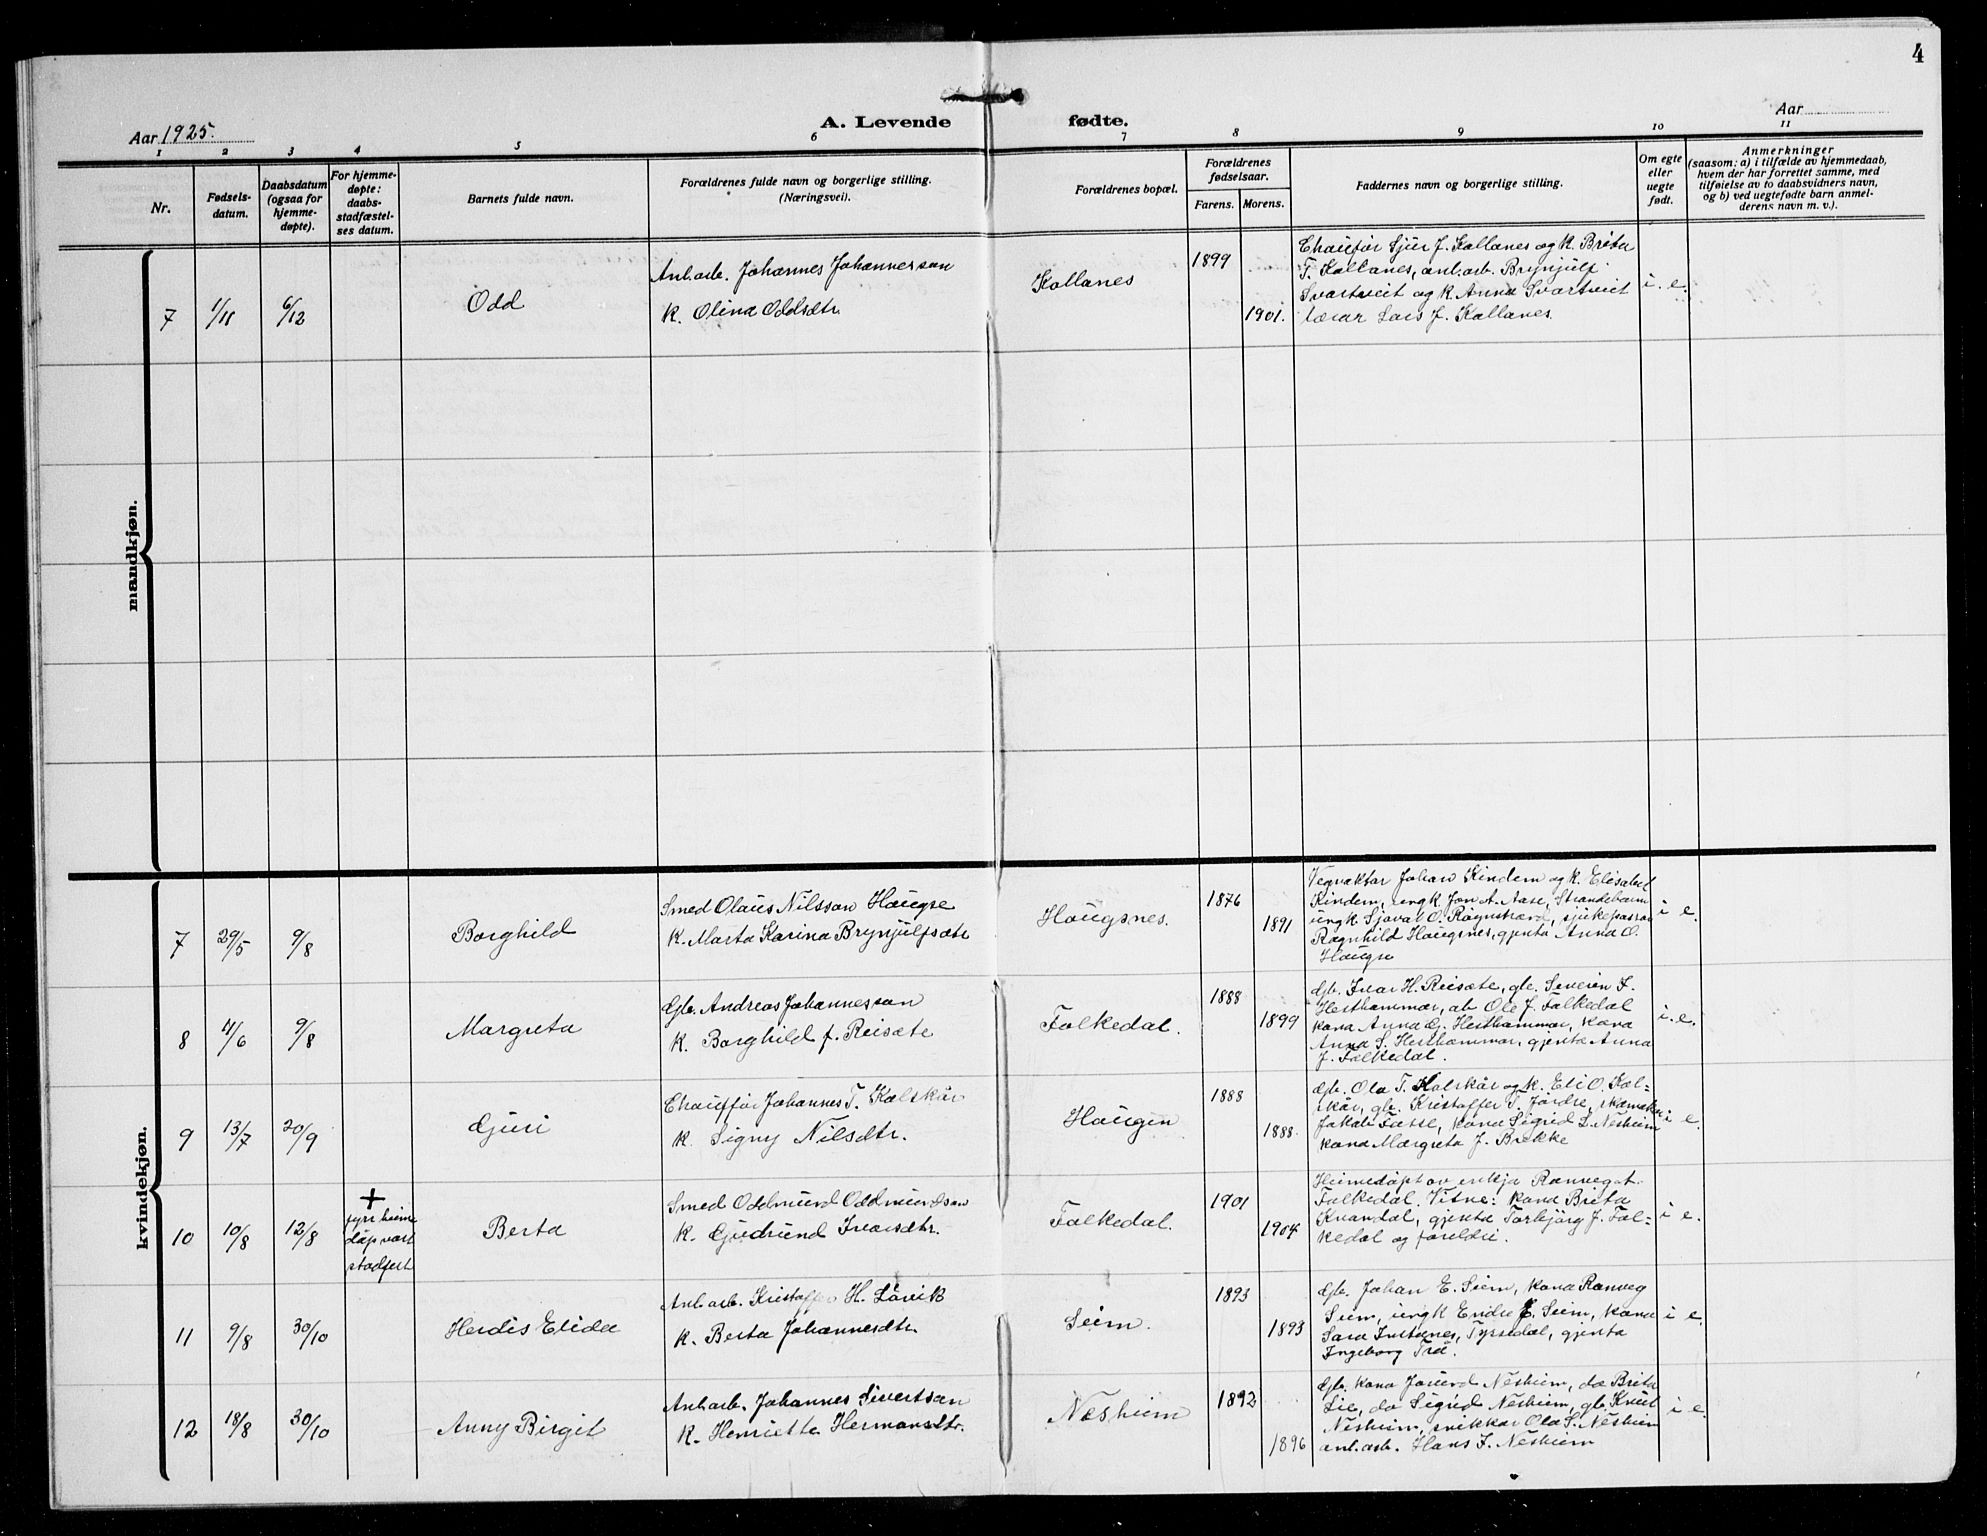 4
Aar 1925.
A. Levende fødte.
Aar
1 2 3 4 5 6 7 8 9 10 11
Nr.
Fødsels-
datum.
Daabsdatum
(ogsaa for
hjemme-
døpte).
For hjemme-
døpte:
daabs-
stadfæstel-
ses datum.
Barnets fulde navn.
Forældrenes fulde navn og borgerlige stilling.
(Næringsvei).
Forældrenes bopæl.
Forældrenes
fødselsaar.
Farens. Morens.
Faddernes navn og borgerlige stilling.
Om egte
eller
uegte
født.
Anmerkninger
(saasom: a) i tilfælde av hjemmedaab,
hvem der har forrettet samme, med
tilføielse av to daabsvidners navn,
og b) ved uegtefødte barn anmel-
derens navn m. v.).
mandkjøn.
7 1/11 6/12
Odd
Anl.arb. Johannes Johannessan
K. Olina Oddsdtr.
Kollanes
1899
1901.
Chaufør Sjur J. Kollanes og k. Brita
T. Kollanes, anl.arb. Brynjulf
Svartveit og k. Anna Svartveit
lærar Lars J. Kollanes.
i. e.
kvindekjøn.
7 29/5 9/8
Borghild
Smed Olaus Nilsson Haugse
K. Marta Karina Brynjulfsdtr
Haugsnes.
1876
1891
Vegvaktar Johan Kindem og k. Elisabet
Kindem, ungk Jon A. Aase, Strandebarm
ungk Sjoval O. Røynstrand, sjukepassar
Ragnhild Haugsnes, gjenta Anna O.
Haugse
i e.
8 4/6 9/8
Margreta
Gb. Andreas Johannessan
K. Borghild f. Reisæte
Folkedal.
1888
1899
Gb. Ivar H. Reisæte, gb. Severin I.
Hesthammar, ab Ole J. Folkedal
kona Anna G. Hesthammar, kona
Anna S. Hesthammar, gjenta Anna
J. Folkedal.
i. e.
9 13/7 20/9
Guri
Chauffør Johannes T. Kolskår
K. Signy Nilsdtr.
Haugen
1888
1888.
Gb. Ola T. Kolskår og k. Eli O. Kol-
skår, gb. Kristoffer S. Jordre, skomakar
Jakob Tosse, kona Sigrid L. Nesheim
kona Margreta J. Brekke
i e.
10 10/8 12/8
+
fyrr heime
døp vart
stadfest
Berta
Smed Oddmund Oddmundsan
K. Gudrund Ivarsdtr.
Folkedal.
1901
1904
Heimedøpt av enkja Rannveg at
Folkedal. Vitne: kona Brita
Kvandal, gjenta Torbjørg J. Fol-
kedal og foreldri.
i e.
11 9/8 30/10
Herdis Elida
Anl.arb. Kristoffer H. Løvik
K. Berta Johannesdtr.
Seim.
1893
1893
Gb. Johan E. Seim, kona Ranveg
Seim, ungk Endre E. Seim, kona
Sara Instanes, Tyssedal, gjenta
Ingeborg Trå.
i e.
12 18/8 30/10
Anny Birgit
Anl.arb. Johannes Sivertsan
K. Henriette Hermansdtr.
Nesheim
1892
1896
Gb. kona Jorund Nesheim, do Brita
Lie, do Sigrid Nesheim, gb. Knut
Nesheim, snikkar Ola S. Nesheim
anl.arb. Hans I. Nesheim
i e.